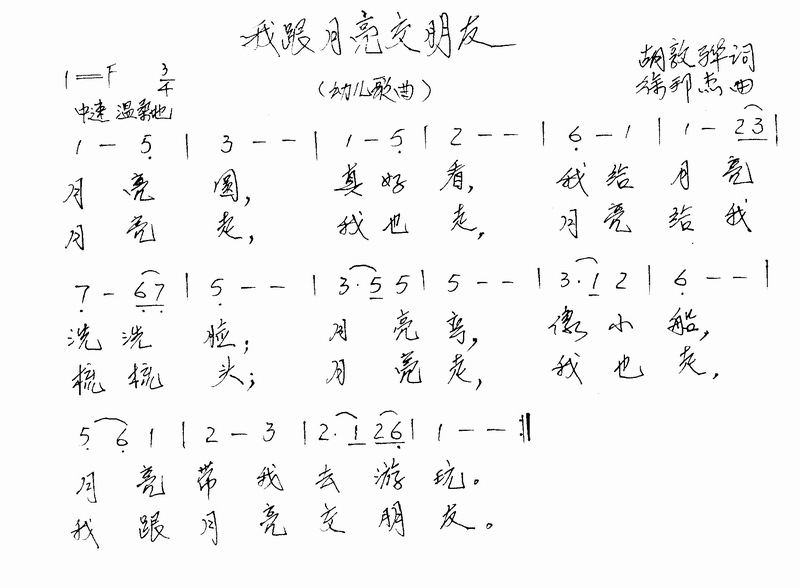 我跟月亮交朋友
（幼儿歌曲）
胡敦骅词
1＝F 3/4
徐邦杰曲
中速 温柔地
1 - 5̣ | 3 - - | 1 - 5̣ | 2 - - | 6̣ - 1 | 1 - 2 3 |
月亮 圆， 真好 看， 我给 月亮
月亮 走， 我也 走， 月亮 给我
7̣ - 6̣ 7̣ | 5̣ - - | 3· 5 5 | 5 - - | 3· 1 2 | 6̣ - - |
洗洗 脸； 月亮弯， 像小 船，
梳梳 头； 月亮走， 我也 走，
5̣ 6̣ 1 | 2 - 3 | 2· 1 2 6̣ | 1 - - :‖
月亮带我去游玩。
我跟月亮交朋友。